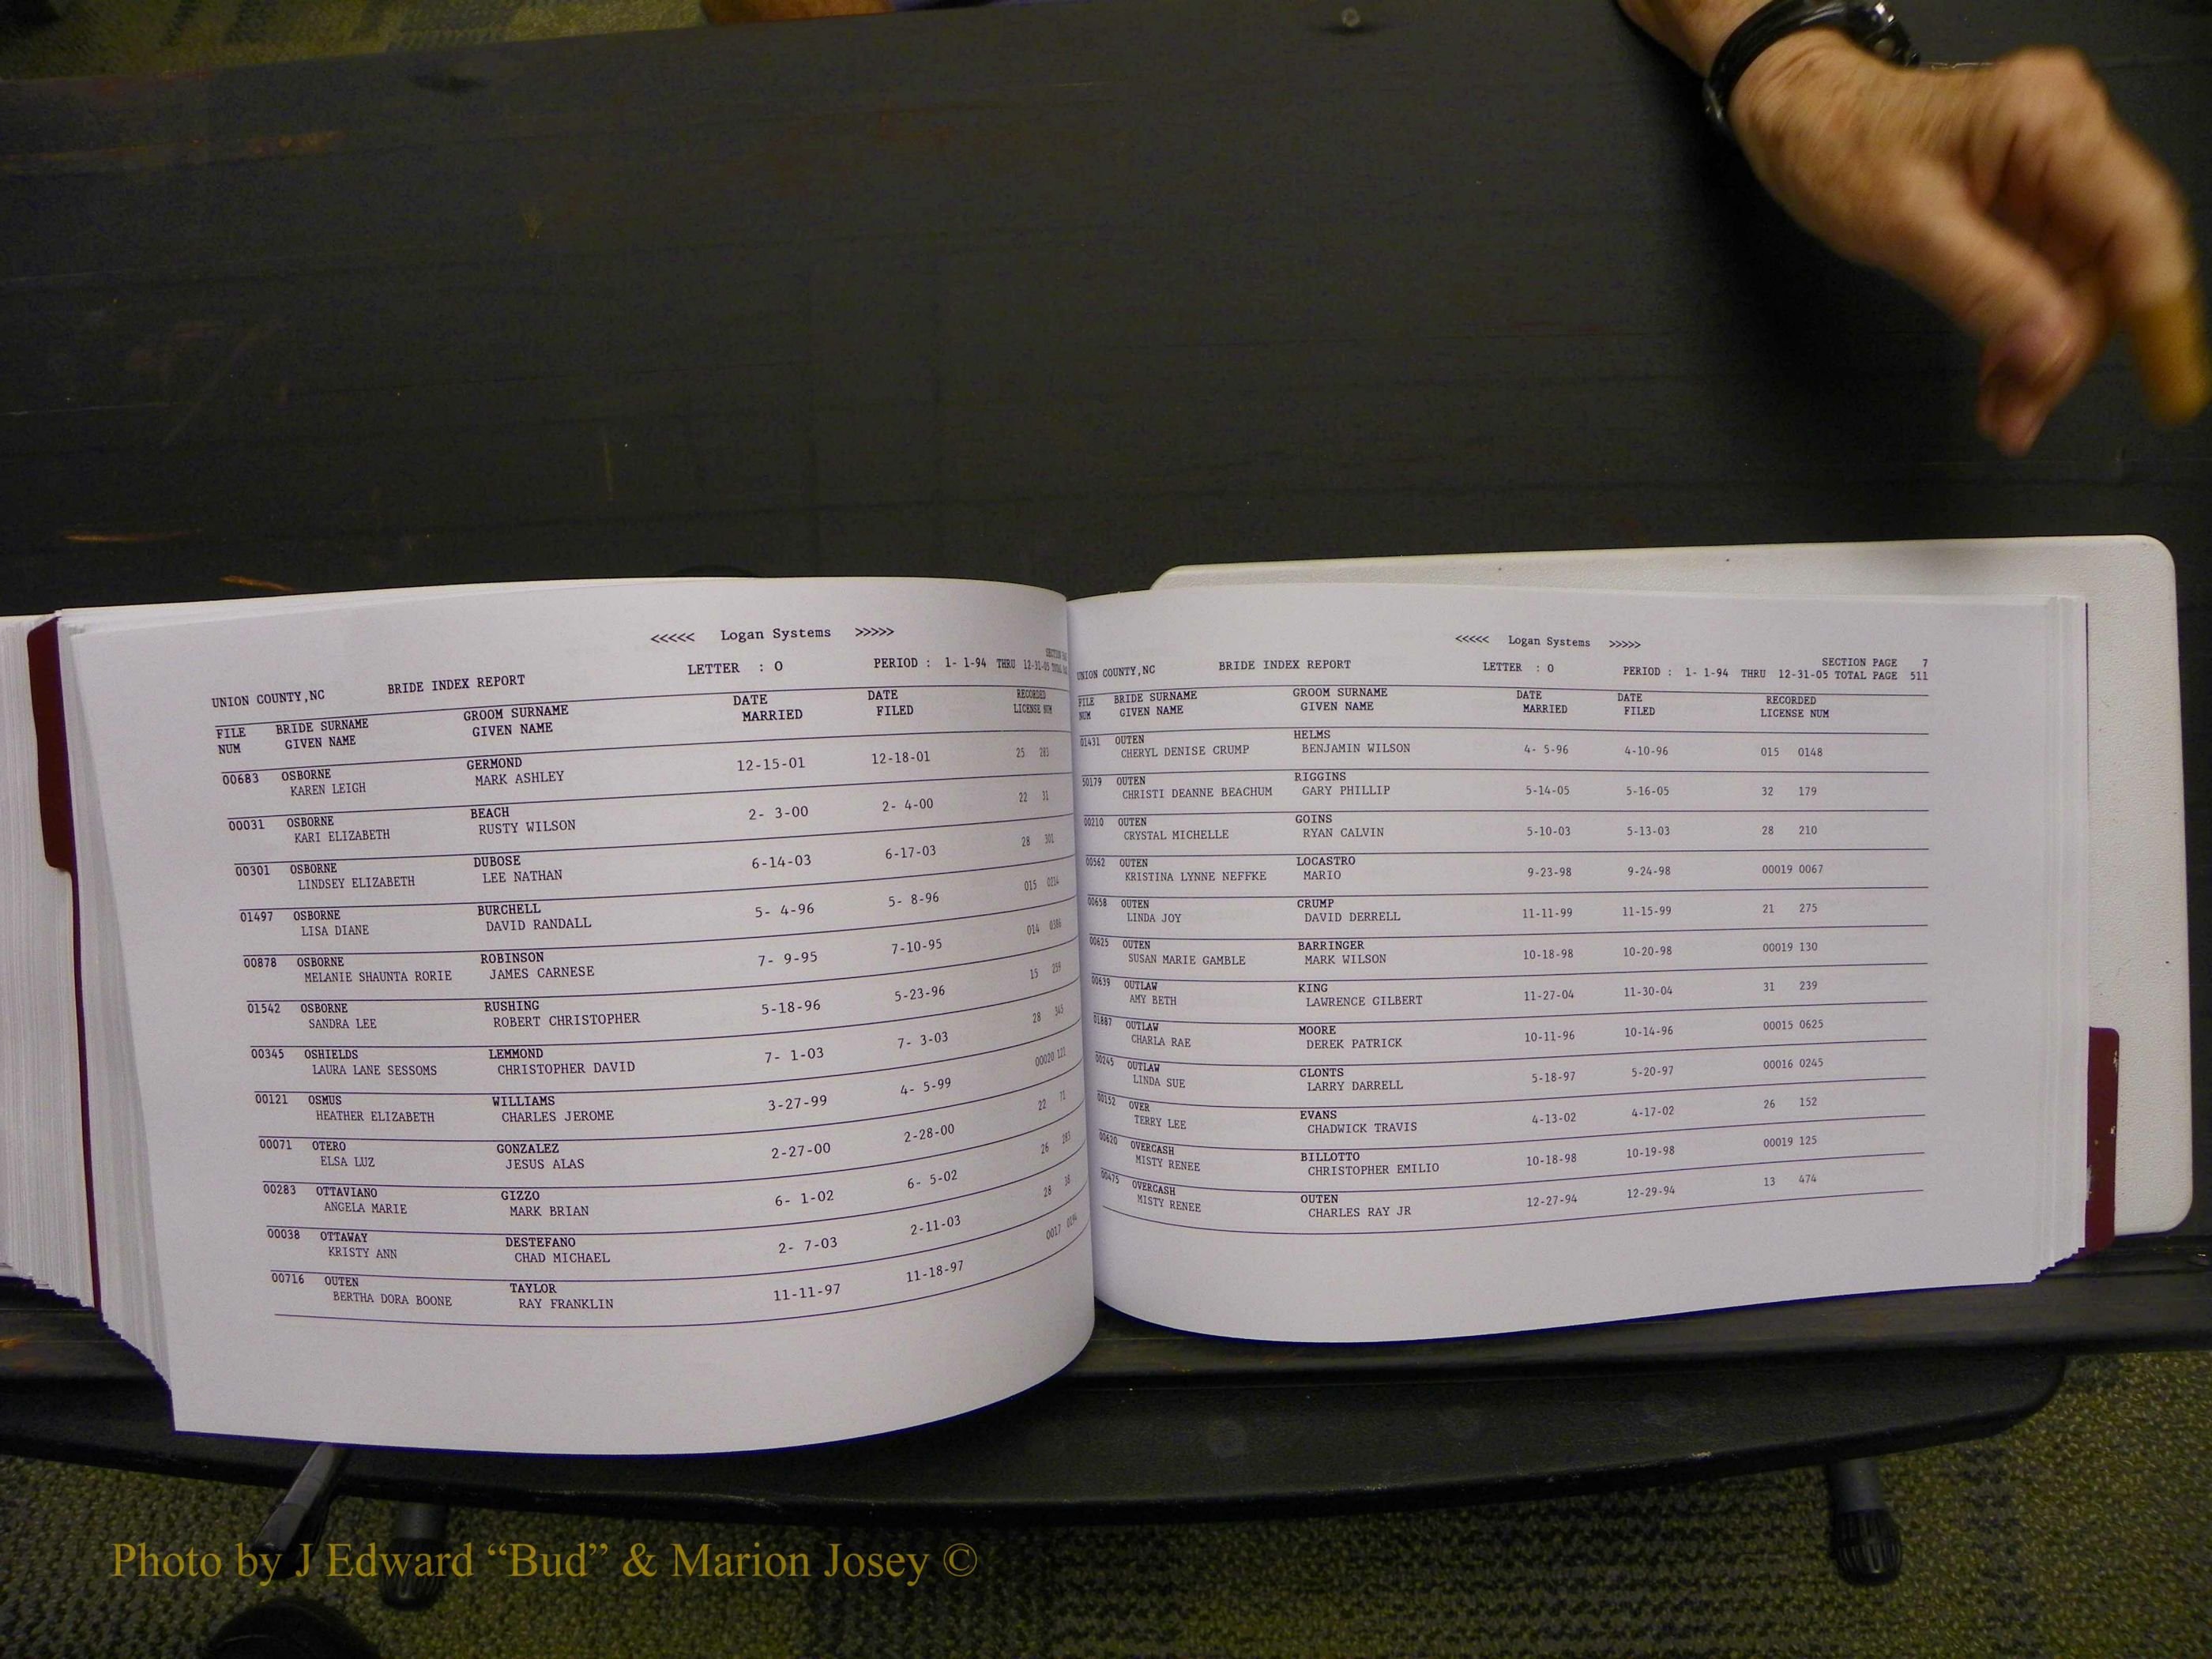 <<<<< Logan Systems >>>>>
UNION COUNTY,NC BRIDE INDEX REPORT LETTER : O PERIOD : 1- 1-94 THRU 12-31-05 TOTAL
FILE BRIDE SURNAME GROOM SURNAME DATE DATE RECORDED
NUM GIVEN NAME GIVEN NAME MARRIED FILED LICENSE NUM
00683 OSBORNE GERMOND 12-15-01 12-18-01 25 283
KAREN LEIGH MARK ASHLEY
00031 OSBORNE BEACH 2- 3-00 2- 4-00 22 31
KARI ELIZABETH RUSTY WILSON
00301 OSBORNE DUBOSE 6-14-03 6-17-03 28 301
LINDSEY ELIZABETH LEE NATHAN
01497 OSBORNE BURCHELL 5- 4-96 5- 8-96 015 0214
LISA DIANE DAVID RANDALL
00878 OSBORNE ROBINSON 7- 9-95 7-10-95 014 0386
MELANIE SHAUNTA RORIE JAMES CARNESE
01542 OSBORNE RUSHING 5-18-96 5-23-96 15 259
SANDRA LEE ROBERT CHRISTOPHER
00345 OSHIELDS LEMMOND 7- 1-03 7- 3-03 28 345
LAURA LANE SESSOMS CHRISTOPHER DAVID
00121 OSMUS WILLIAMS 3-27-99 4- 5-99 00020 121
HEATHER ELIZABETH CHARLES JEROME
00071 OTERO GONZALEZ 2-27-00 2-28-00 22 71
ELSA LUZ JESUS ALAS
00283 OTTAVIANO GIZZO 6- 1-02 6- 5-02 26 283
ANGELA MARIE MARK BRIAN
00038 OTTAWAY DESTEFANO 2- 7-03 2-11-03 28 38
KRISTY ANN CHAD MICHAEL
00716 OUTEN TAYLOR 11-11-97 11-18-97 0017
BERTHA DORA BOONE RAY FRANKLIN
<<<<< Logan Systems >>>>>
SECTION PAGE 7
UNION COUNTY,NC BRIDE INDEX REPORT LETTER : O PERIOD : 1- 1-94 THRU 12-31-05 TOTAL PAGE 511
FILE BRIDE SURNAME GROOM SURNAME DATE DATE RECORDED
NUM GIVEN NAME GIVEN NAME MARRIED FILED LICENSE NUM
01431 OUTEN HELMS 4- 5-96 4-10-96 015 0148
CHERYL DENISE CRUMP BENJAMIN WILSON
50179 OUTEN RIGGINS 5-14-05 5-16-05 32 179
CHRISTI DEANNE BEACHUM GARY PHILLIP
00210 OUTEN GOINS 5-10-03 5-13-03 28 210
CRYSTAL MICHELLE RYAN CALVIN
00562 OUTEN LOCASTRO 9-23-98 9-24-98 00019 0067
KRISTINA LYNNE NEFFKE MARIO
00658 OUTEN CRUMP 11-11-99 11-15-99 21 275
LINDA JOY DAVID DERRELL
00625 OUTEN BARRINGER 10-18-98 10-20-98 00019 130
SUSAN MARIE GAMBLE MARK WILSON
00639 OUTLAW KING 11-27-04 11-30-04 31 239
AMY BETH LAWRENCE GILBERT
01887 OUTLAW MOORE 10-11-96 10-14-96 00015 0625
CHARLA RAE DEREK PATRICK
00245 OUTLAW CLONTS 5-18-97 5-20-97 00016 0245
LINDA SUE LARRY DARRELL
00152 OVER EVANS 4-13-02 4-17-02 26 152
TERRY LEE CHADWICK TRAVIS
00620 OVERCASH BILLOTTO 10-18-98 10-19-98 00019 125
MISTY RENEE CHRISTOPHER EMILIO
00475 OVERCASH OUTEN 12-27-94 12-29-94 13 474
MISTY RENEE CHARLES RAY JR
Photo by J Edward “Bud” & Marion Josey ©